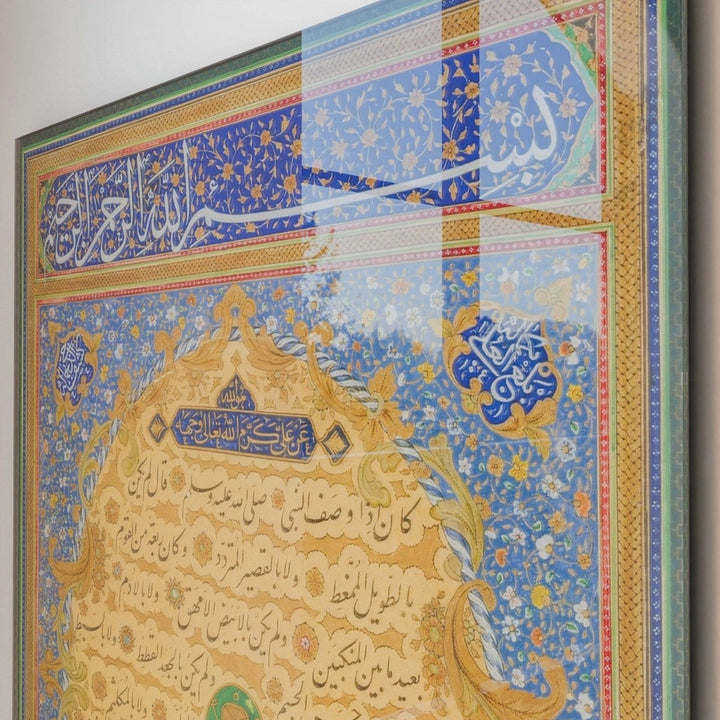 بسم الله الرحمن الرحيم
هو الله
عن علي كرم الله تعالى وجهه
كان اذا وصف النبي صلى الله عليه وسلم قال لم يكن
بالطويل الممغط ولا بالقصير المتردد وكان ربعة من القوم
ولم يكن بالابيض الامهق ولا بالادم
بعيد ما بين المنكبين ولم يكن بالجعد القطط ولا بالسبط
الجسيم ولا بالمكلثم